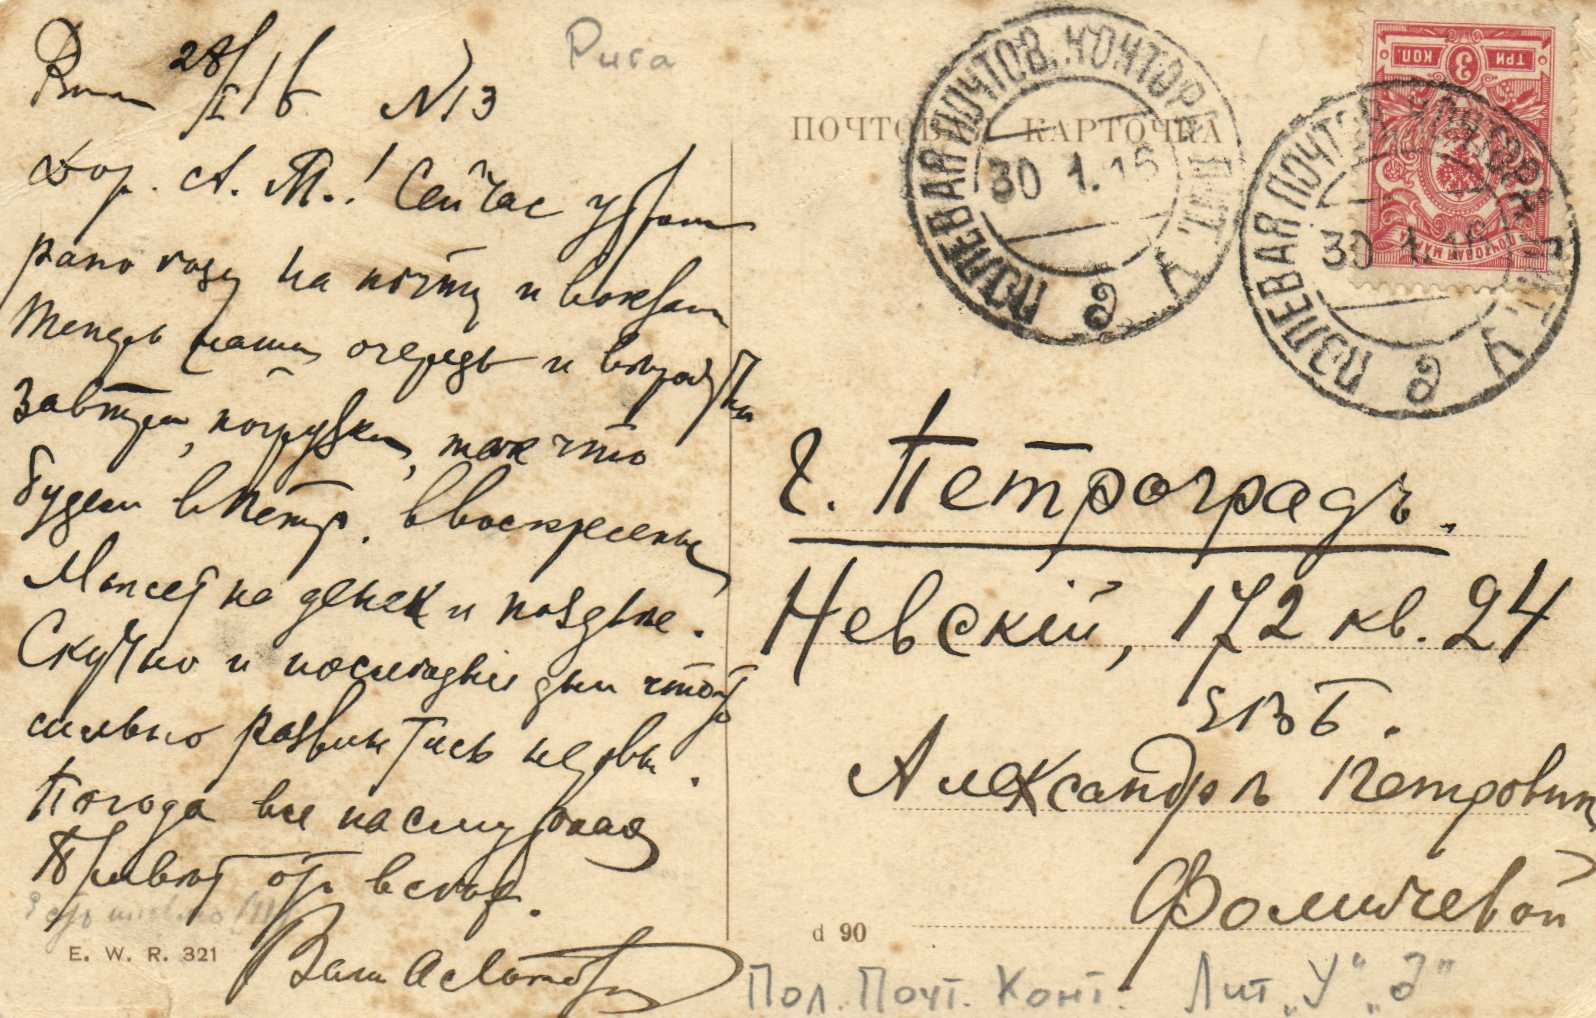 Рига 28/I 16 N 13
Рига
Дор. А. М.! Сейчас утром
рано хожу на почту и вокзал
Теперь наша очередь и
завтра, погрузка, так что
будем в Петр. в воскресенье
Может на денек и позднее.
Скучно и последние дни что-то
сильно развинтись нервы.
Погода все пасмурная
Привет от всех.
Ваш
E. W. R. 321
ПОЧТОВАЯ КАРТОЧКА
ПОЛЕВАЯ ПОЧТОВ. КОНТОРА ЛИТ. У
30 1.16
ПОЛЕВАЯ ПОЧТОВ. КОНТОРА ЛИТ. У
30 1.16
ТРИ 3 КОП.
ПОЧТОВАЯ МАРКА
г. Петроградъ.
Невскій, 172 кв. 24
ЕВБ.
Александрѣ Петровнѣ
Фомичевой
d 90
Пол. Почт. Конт. Лит. „У" „д"